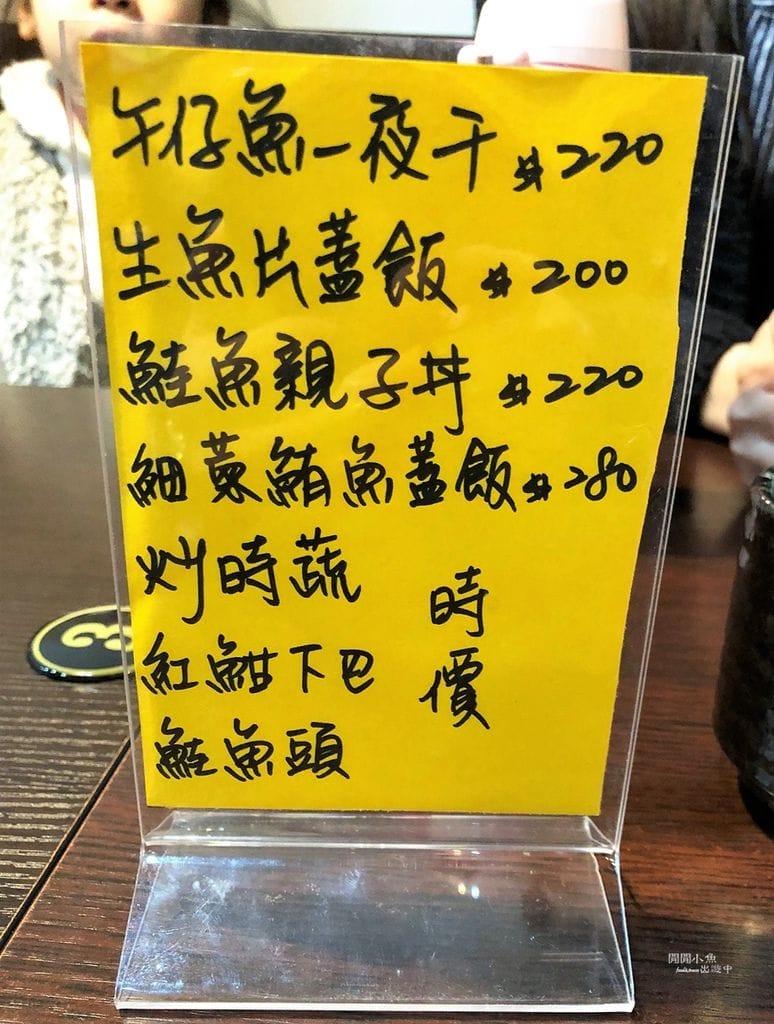 午仔魚一夜干 $220
生魚片蓋飯 $200
鮭魚親子丼 $220
細菜鮪魚蓋飯 $280
炒時蔬
時價
紅魽下巴
鮭魚頭
3
閒閒小魚
出遊中